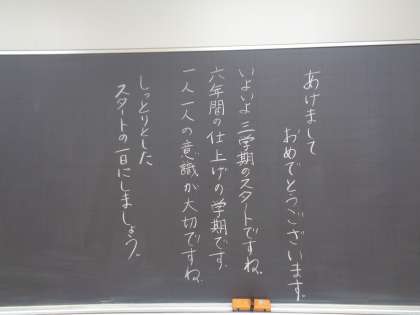 あけまして
おめでとうございます。
いよいよ三学期のスタートですね。
六年間の仕上げの学期です。
一人一人の意識が大切ですね。
しっとりとした
スタートの一日にしましょう。